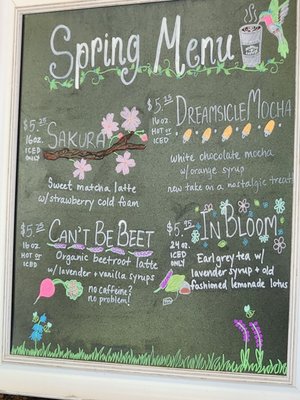 Spring Menu
$5.25
16 oz
ICED
ONLY
SAKURA
Sweet matcha latte
w/strawberry cold foam
$5.25
16 oz
HOT or
ICED
DREAMSICLE MOCHA
white chocolate mocha
w/orange syrup
new take on a nostalgic treat
$5.25
16 oz
HOT or
ICED
CAN'T BE BEET
Organic beetroot latte
w/ lavender + vanilla syrups
no caffeine?
no problem!
$5.
24 oz
ICED
ONLY
IN BLOOM
Earl grey tea w/
lavender syrup + old
fashioned lemonade lotus